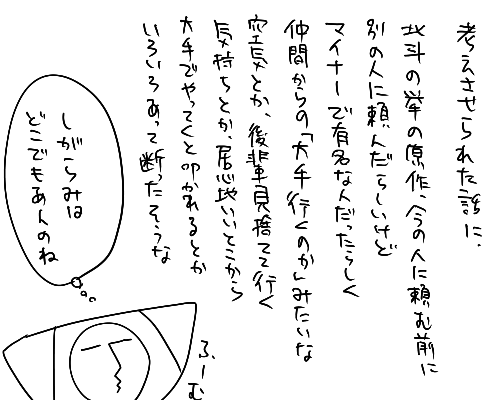 考えさせられた話に、
北斗の挙の原作、今の人に頼む前に
別の人に頼んだらしいけど
マイナーで有名な人だったらしく
仲間からの「大手行くのか」みたいな
空気とか、後輩見捨てて行く
気持ちとか、居心地いいとこから
大手でやってくと叩かれるとか
いろいろあって断ったそうな
しがらみは
どこでもあんのね
ふーむ